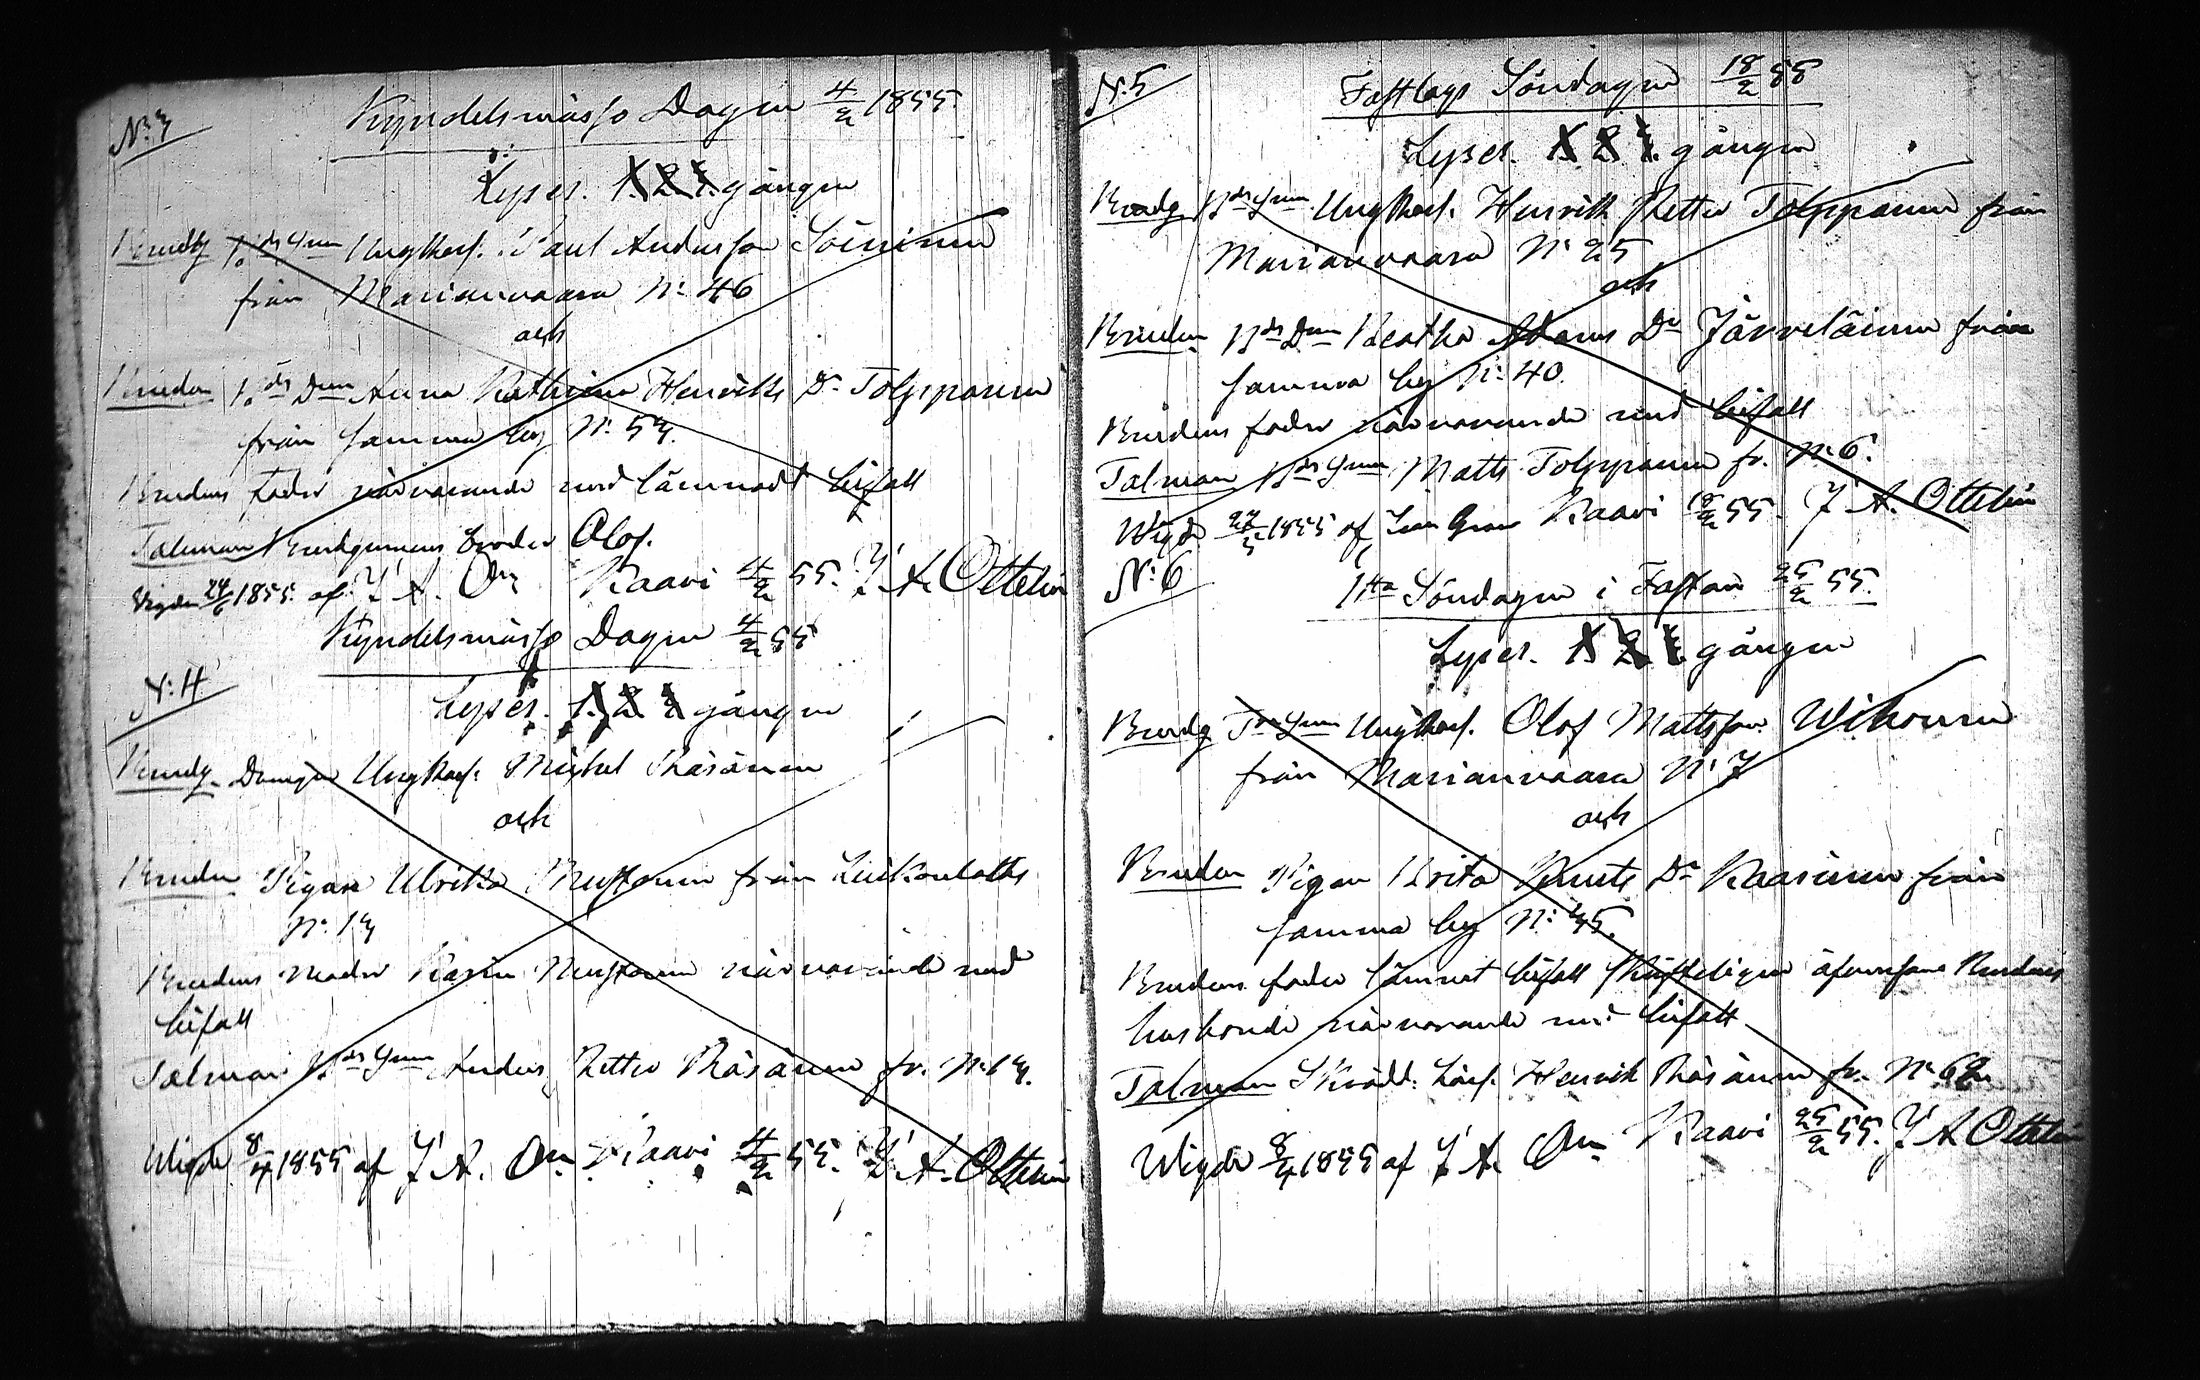 N:3
Kyndelsmässo Dagen 4/2 1855.
Lyses. 1. 2. 3. gången
Brudg. Bds Sonen Ungkarl. Paul Andersson Soininen
från Marianvaara N: 46
och
Bruden Bds Dren Anna Kathrina Henriks Dr Tolppanen
från samma by N: 53.
Brudens fader närvarande med lämnadt bifall
Talman Brudgumens broder Olof.
Vigde 24/6 1855. af J A. On Kaavi 4/2 55. J A. Ottelin
Kyndelsmässo Dagen 4/2 55
N: 4
Lyses. 1. 2. 3. gången
Brudg. Drängen Ungkarl. Michel Räsänen
och
Bruden Pigan Ulrika Mustonen från Luikonlahti
N: 13
Brudens moder Karin Mustonen närvarande med
bifall
Talman Bds Sonen Anders Petter Räsänen fr. N: 13.
Wigde 8/4 1855 af J A. On Kaavi 4/2 55. J A. Ottelin
N: 5
Fastlags Söndagen 18/2 55
Lyses. 1. 2. 3. gången
Brudg Bds Sonen Ungkarl. Henrik Petter Tolppanen från
Marianvaara N: 25
och
Bruden Bds Dren Beatha Adams Dr Järveläinen från
samma by N: 40.
Brudens fader närvarande med bifall
Talman Bds Sonen Matts Tolppanen fr. N: 6.
Wigde 27/5 1855 af Kaavi 18/2 55. J A. Ottelin
N: 6
1sta Söndagen i Fastan 25/2 55.
Lyses. 1. 2. 3. gången
Brudg Tr Sonen Ungkarl. Olof Mattsson Wihonen
från Marianvaara N: 7
och
Bruden Pigan Brita Knuts Dr Kaasinen från
samma by N: 45.
Brudens fader lämnat bifall skriftligen äfvensom Brudens
husbonde närvarande med bifall
Talman Skrädd. Lärl. Henrik Räsänen fr. N: 62
Wigde 8/4 1855 af J A. On Kaavi 25/2 55. J A Ottelin